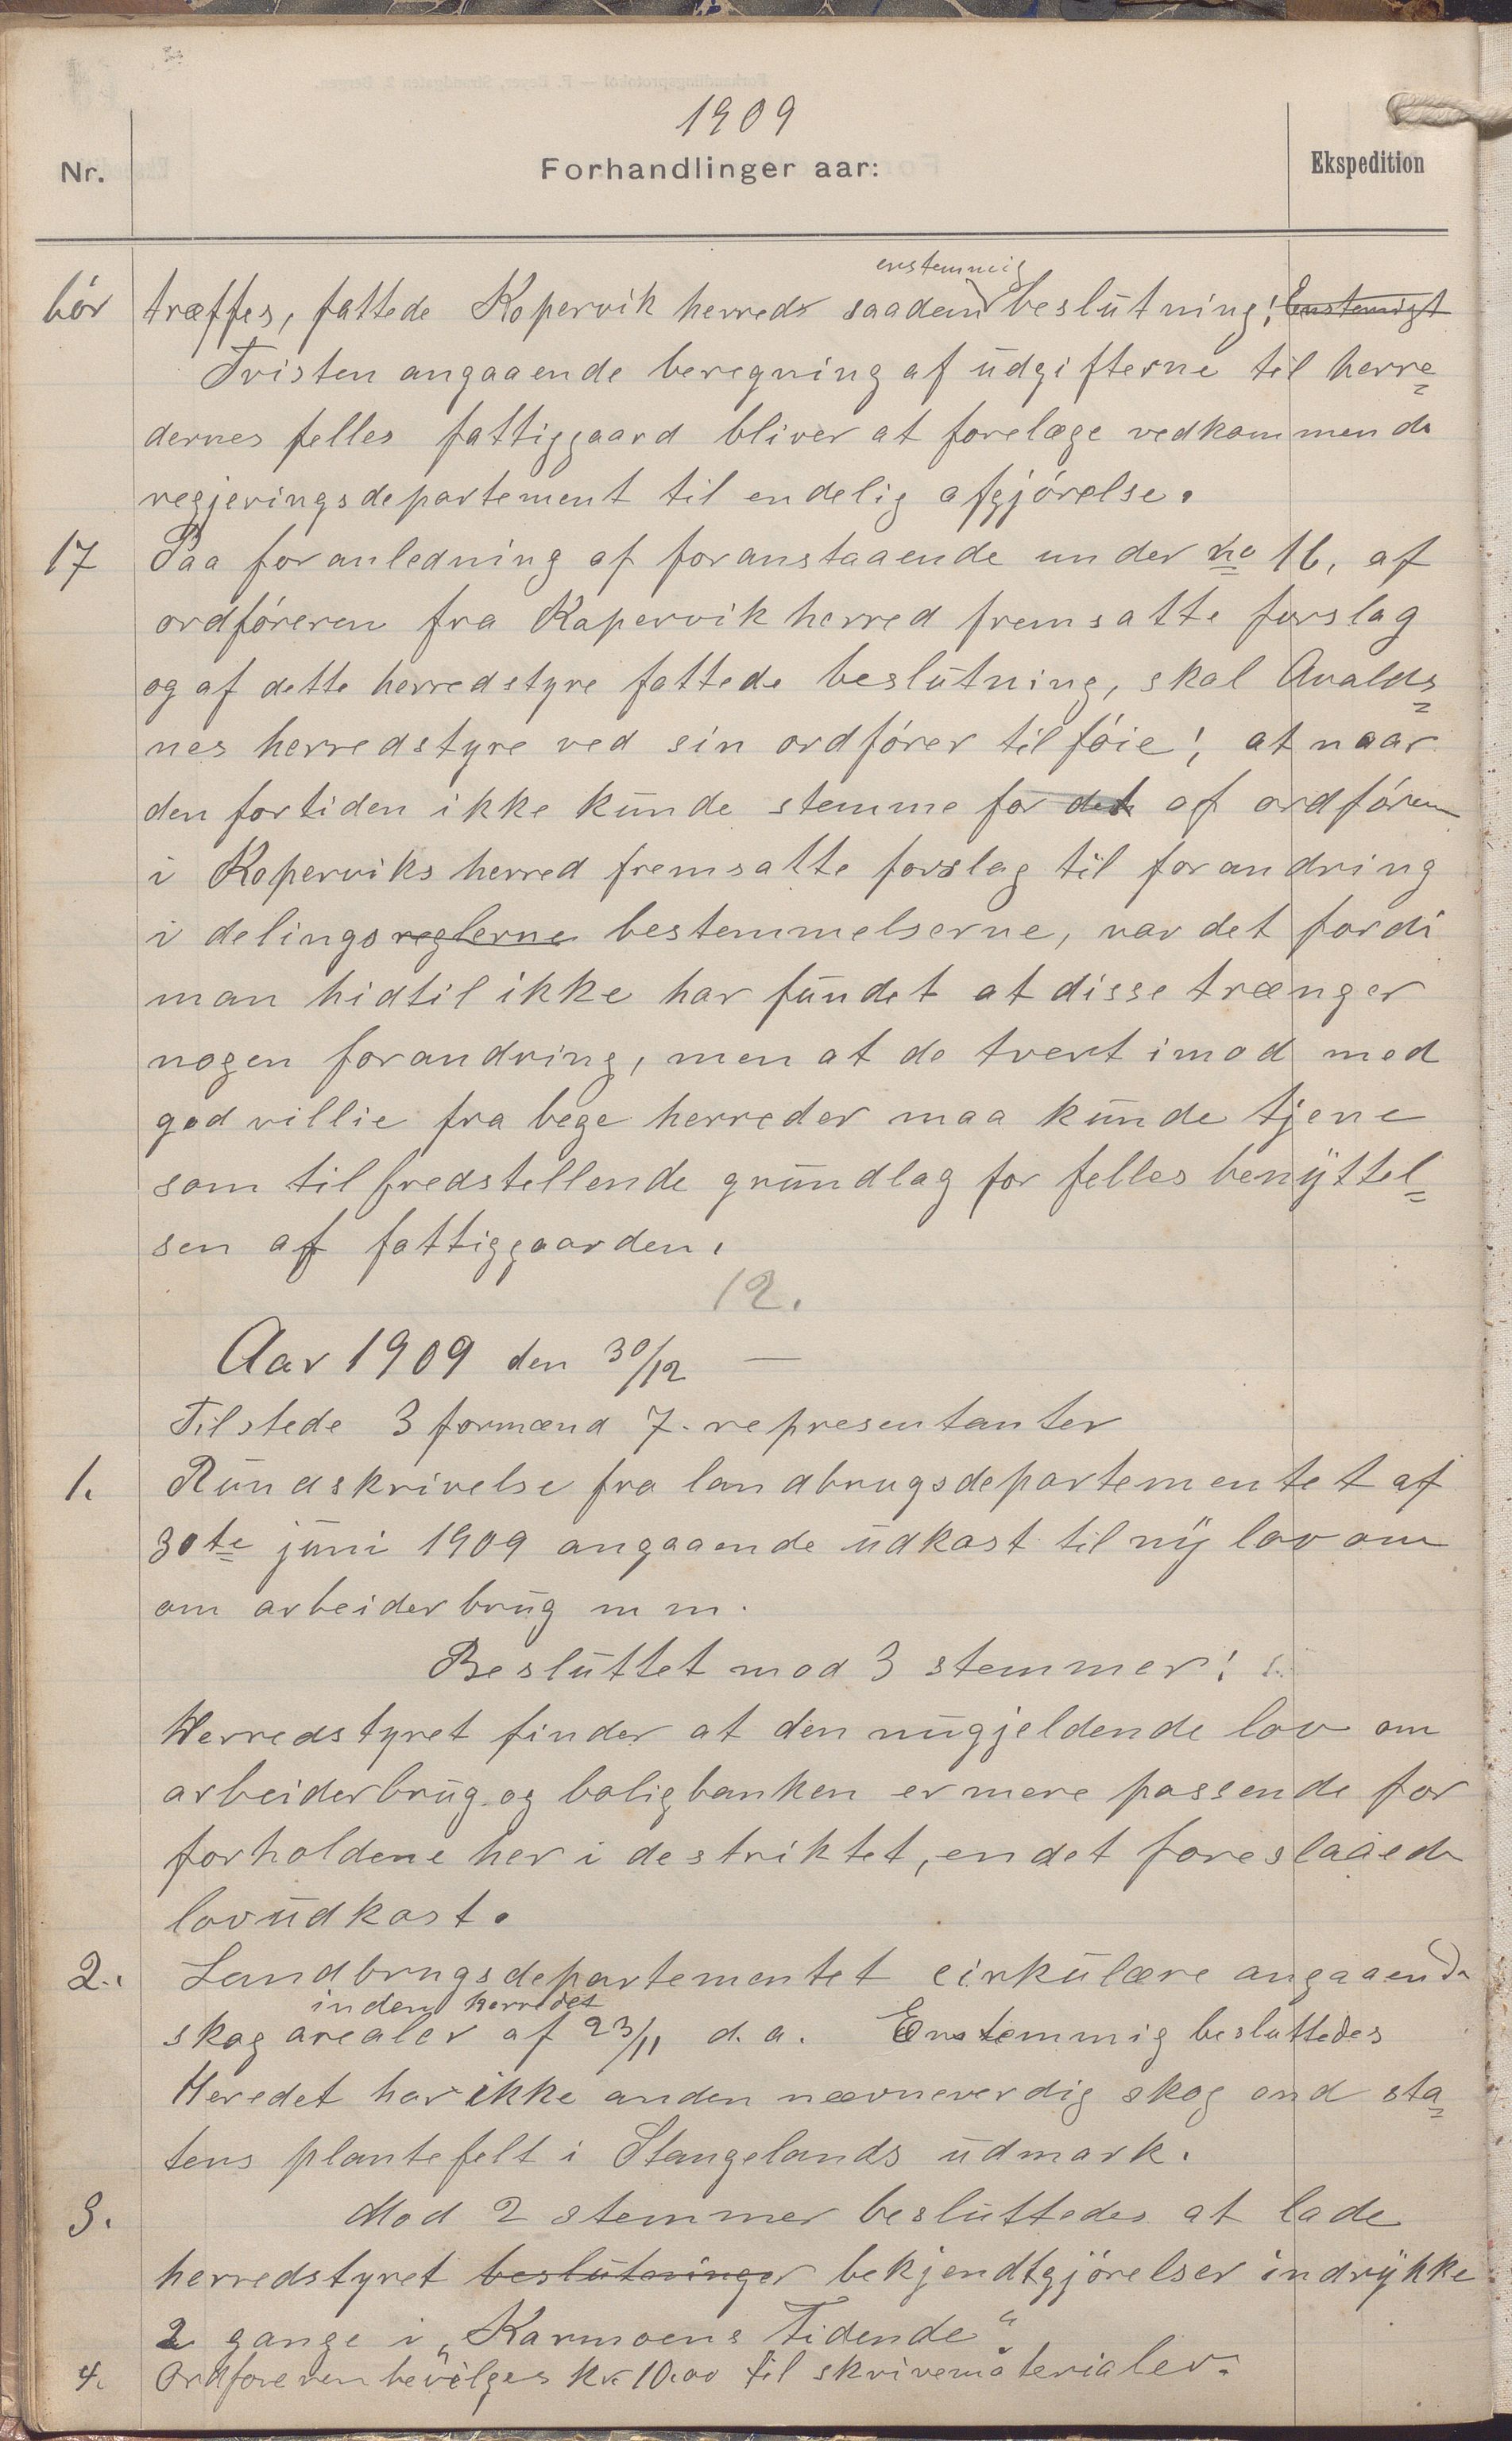 1909
Nr.
Forhandlinger aar:
Ekspedition
enstemmig
bör træffes, fattede Kopervik herreds saaden beslutning; Enstemigt
Tvisten angaaende beregning af udgifterne til herre
dernes felles fattiggaard bliver at forelæge vedkommende
regjeringsdepartement til endelig afgjörelse.
17 Paa foranledning af foranstaaende under no 16, af
ordföreren fra Kopervik herred fremsatte forslag
og af dette herredstyre fattede beslutning, skal Avalds
nes herredstyre ved sin ordförer tilföie; at naar
den fortiden ikke kunde stemme for det af ordföreren
i Koperviks herred fremsatte forslag til forandring
i delingsreglerne bestemmelserne, var det fordi
man hidtil ikke har fundet at disse trænger
nogen forandring, men at de tvert imod med
god villie fra bege herreder maa kunde tjene
som tilfredstellende grundlag for felles benyttel
sen af fattiggaarden.
12.
Aar 1909 den 30/12 —
Tilstede 3 formænd 7 representanter
1. Rundskrivelse fra landbrugsdepartementet af
30te juni 1909 angaaende udkast til ny lov om
om arbeiderbrug m m.
Besluttet mod 3 stemmer:
Herredstyret finder at den nugjeldende lov om
arbeiderbrug og boligbanken er mere passende for
forholdene her i destriktet, en det foreslaaede
lovudkast.
2. Landbrugsdepartementet cirkulære angaaende
inden herredet
skog arealer af 23/11 d. a. Enstemmig besluttedes
Heredet har ikke anden nævneverdig skog end sta
tens plantefelt i Stangelands udmark.
3. Mod 2 stemmer besluttedes at lade
herredstyret beslutninger bekjendtgjörelser indrykke
2 gange i „Karmøens Tidende“.
4. Ordføreren bevilges kr. 10.00 til skrivematerialer.